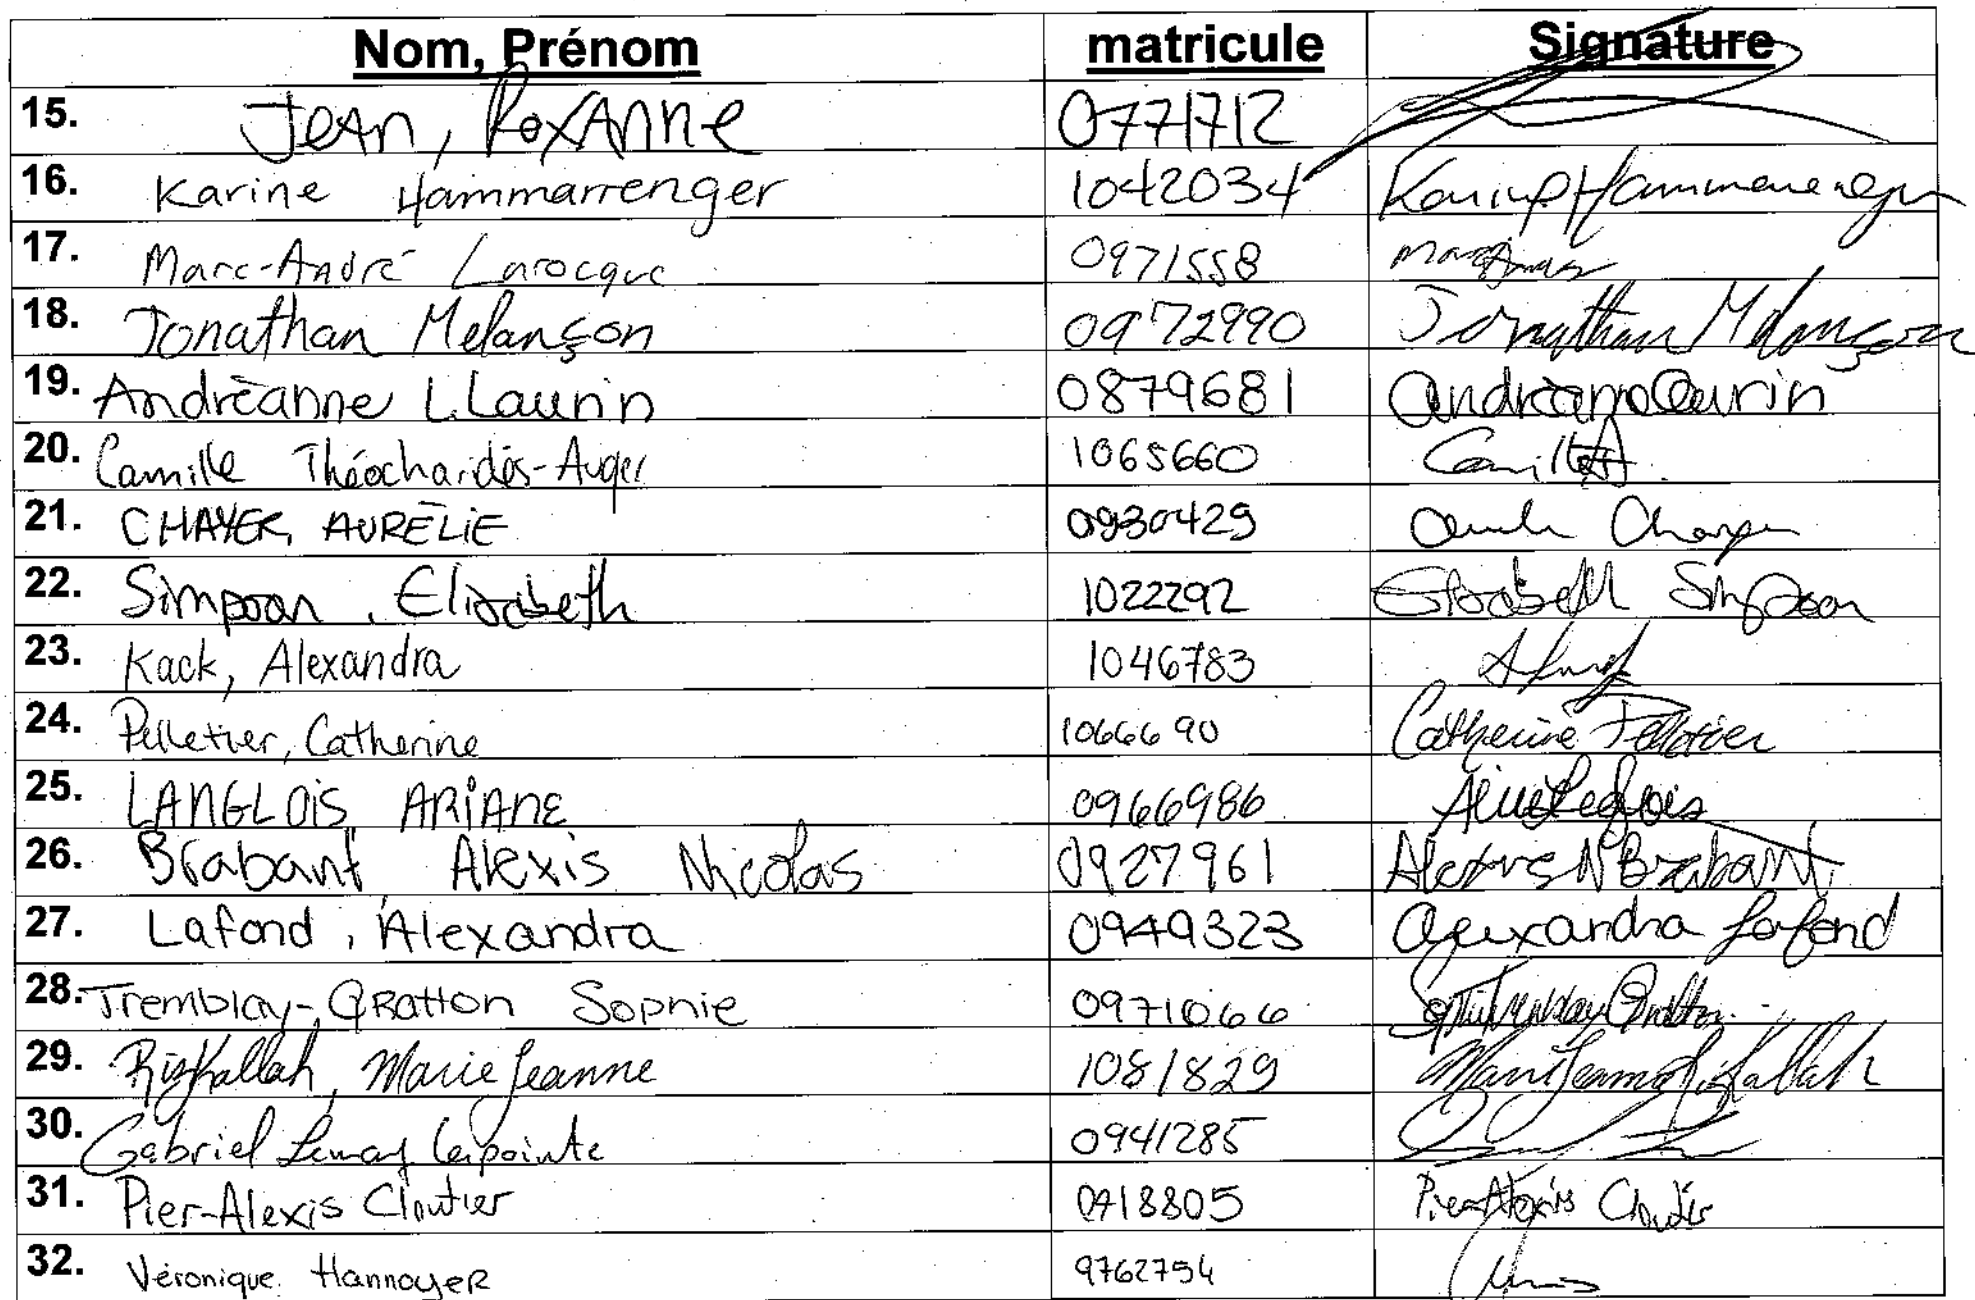 Nom, Prénom matricule Signature
15. Jean, RoxAnne 0771712
16. Karine Hammarrenger 1042034 Karine Hammarrenger
17. Marc-André Larocque 0971558
18. Jonathan Melançon 0972990 Jonathan Melançon
19. Andréanne L.Laurin 0879681
20. Camille Théocharidès-Auger 1065660
21. CHAYER, AURÉLIE 0930429
22. Simpson, Elizabeth 1022292 Elizabeth Simpson
23. Kack, Alexandra 1046783
24. Pelletier, Catherine 1066690 Catherine Pelletier
25. LANGLOIS ARIANE 0966986
26. Brabant Alexis Nicolas 0927961 Alexis N Brabant
27. Lafond, Alexandra 0949323 Alexandra Lafond
28. Tremblay-GRatton Sophie 0971066
29. Rizkallah, Marie Jeanne 1081829
30. Gabriel Lemay Lapointe 0941285
31. Pier-Alexis Cloutier 0918805 Pier-Alexis Cloutier
32. Véronique Hannoyer 9762754